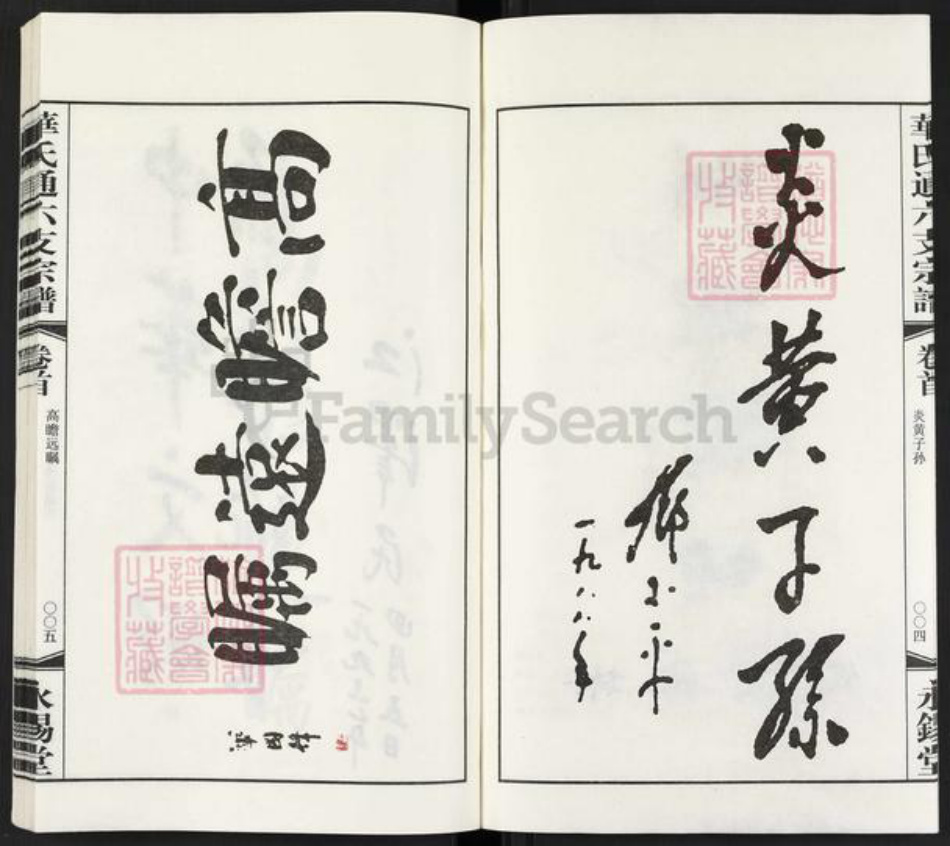 華氏通六支宗譜
卷首
炎黄子孙
〇〇四
永錫堂
炎黃子孫
一九八八年
FamilySearch
譜學會
收藏
高瞻遠矚
譜學會
收藏
華氏通六支宗譜
卷首
高瞻远瞩
〇〇五
永錫堂